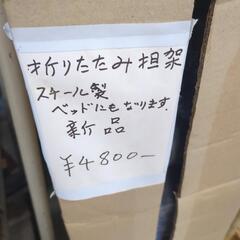 折りたたみ担架
スチール製
ベッドにもなります.
新品
¥4800-